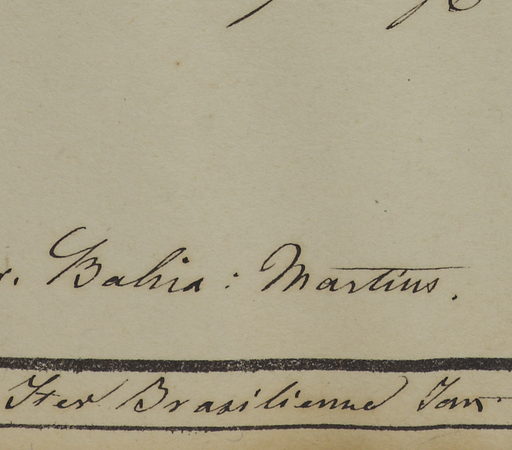 . Bahia: Martius.
Iter Brasilienne Jan